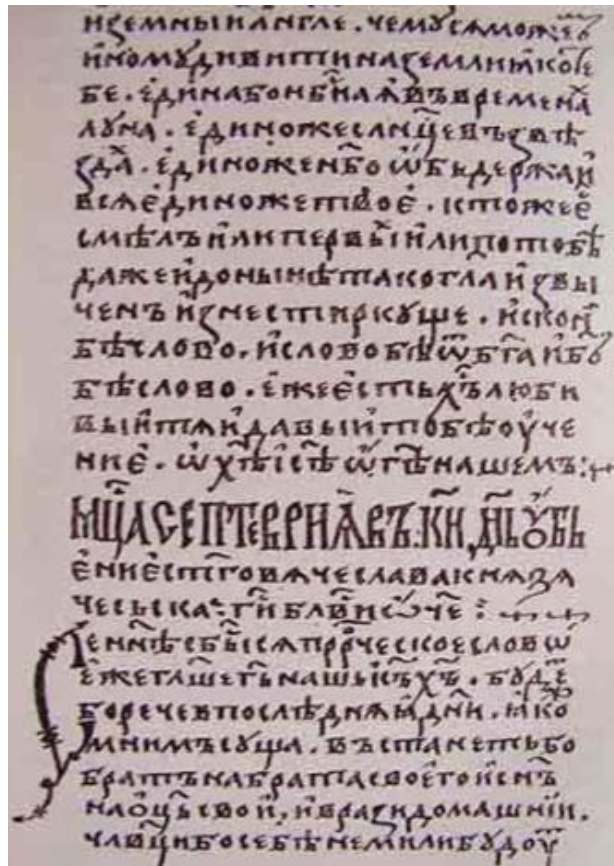 иземныи англе. чемусѧможеⷮ
и҆номꙋдивитиназемлиꙗ҆коⷤе
бе. е҆динабонбн҃аѧ҆въвремена
лꙋна. е҆диножеслн҃цевъꙁвѣ
ꙁдаⷯ. е҆диноженб҃оѡ҆бьдержаи҆
всѧе҆диножетвое҆. ктожее҆
смѣлъи҆липервыⷯи҆липотобѣ
дажеи҆донынѣтакоглаи҆ꙁвы
ченъи҆ꙁнестиркꙋще. и҆сконⷩ
бѣслово. и҆словобѣѿб҃гаиб҃ъ
бѣслово. е҆жее҆стьхс҃ълюби
выи҆тѧи҆давыи҆тобѣоу҆че
ние҆. ѡ҆хс҃ѣіс҃ѣѡ҆гс҃ѣнашемъ:
мц҃асептевриꙗ҆въ.ки҃.дн҃ьоу҆бь
е҆ние҆ст҃гвѧчеславакнѧꙁѧ
чесьска: гс҃иблв҃иѡ҆ч҃е:
Ꙇеннѣсбы҆сѧпрⷪ҇рческоесловѡ
е҆жегл҃ашегс҃ьнашьіс҃ъхс҃ъ. бꙋдⷷ
боречевпослѣднѧꙗ҆дн҃и. ꙗ҆ко
мнимъсꙋща. въстанетьбо
братънабратасвоегоисн҃ъ
наоц҃ьсвои҆, и҆враꙁидомашнїи.
члв҃цибосебѣнемилибꙋдоуⷮ